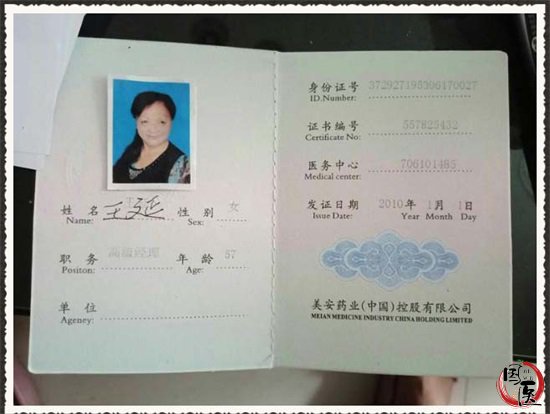 姓 名 王延 性 别 女
Name: Sex:
职 务 年 龄 57
Positon: Age:
单 位
Ageney:
身份证号
ID.Number:
证书编号 557825432
Certificate No:
医务中心 706101485
Medical center:
发证日期 2010年 1月 1日
Issue Date: Year Month Day
美安药业(中国)控股有限公司
MEIAN MEDICINE INDUSTRY CHINA HOLDING LIMITED